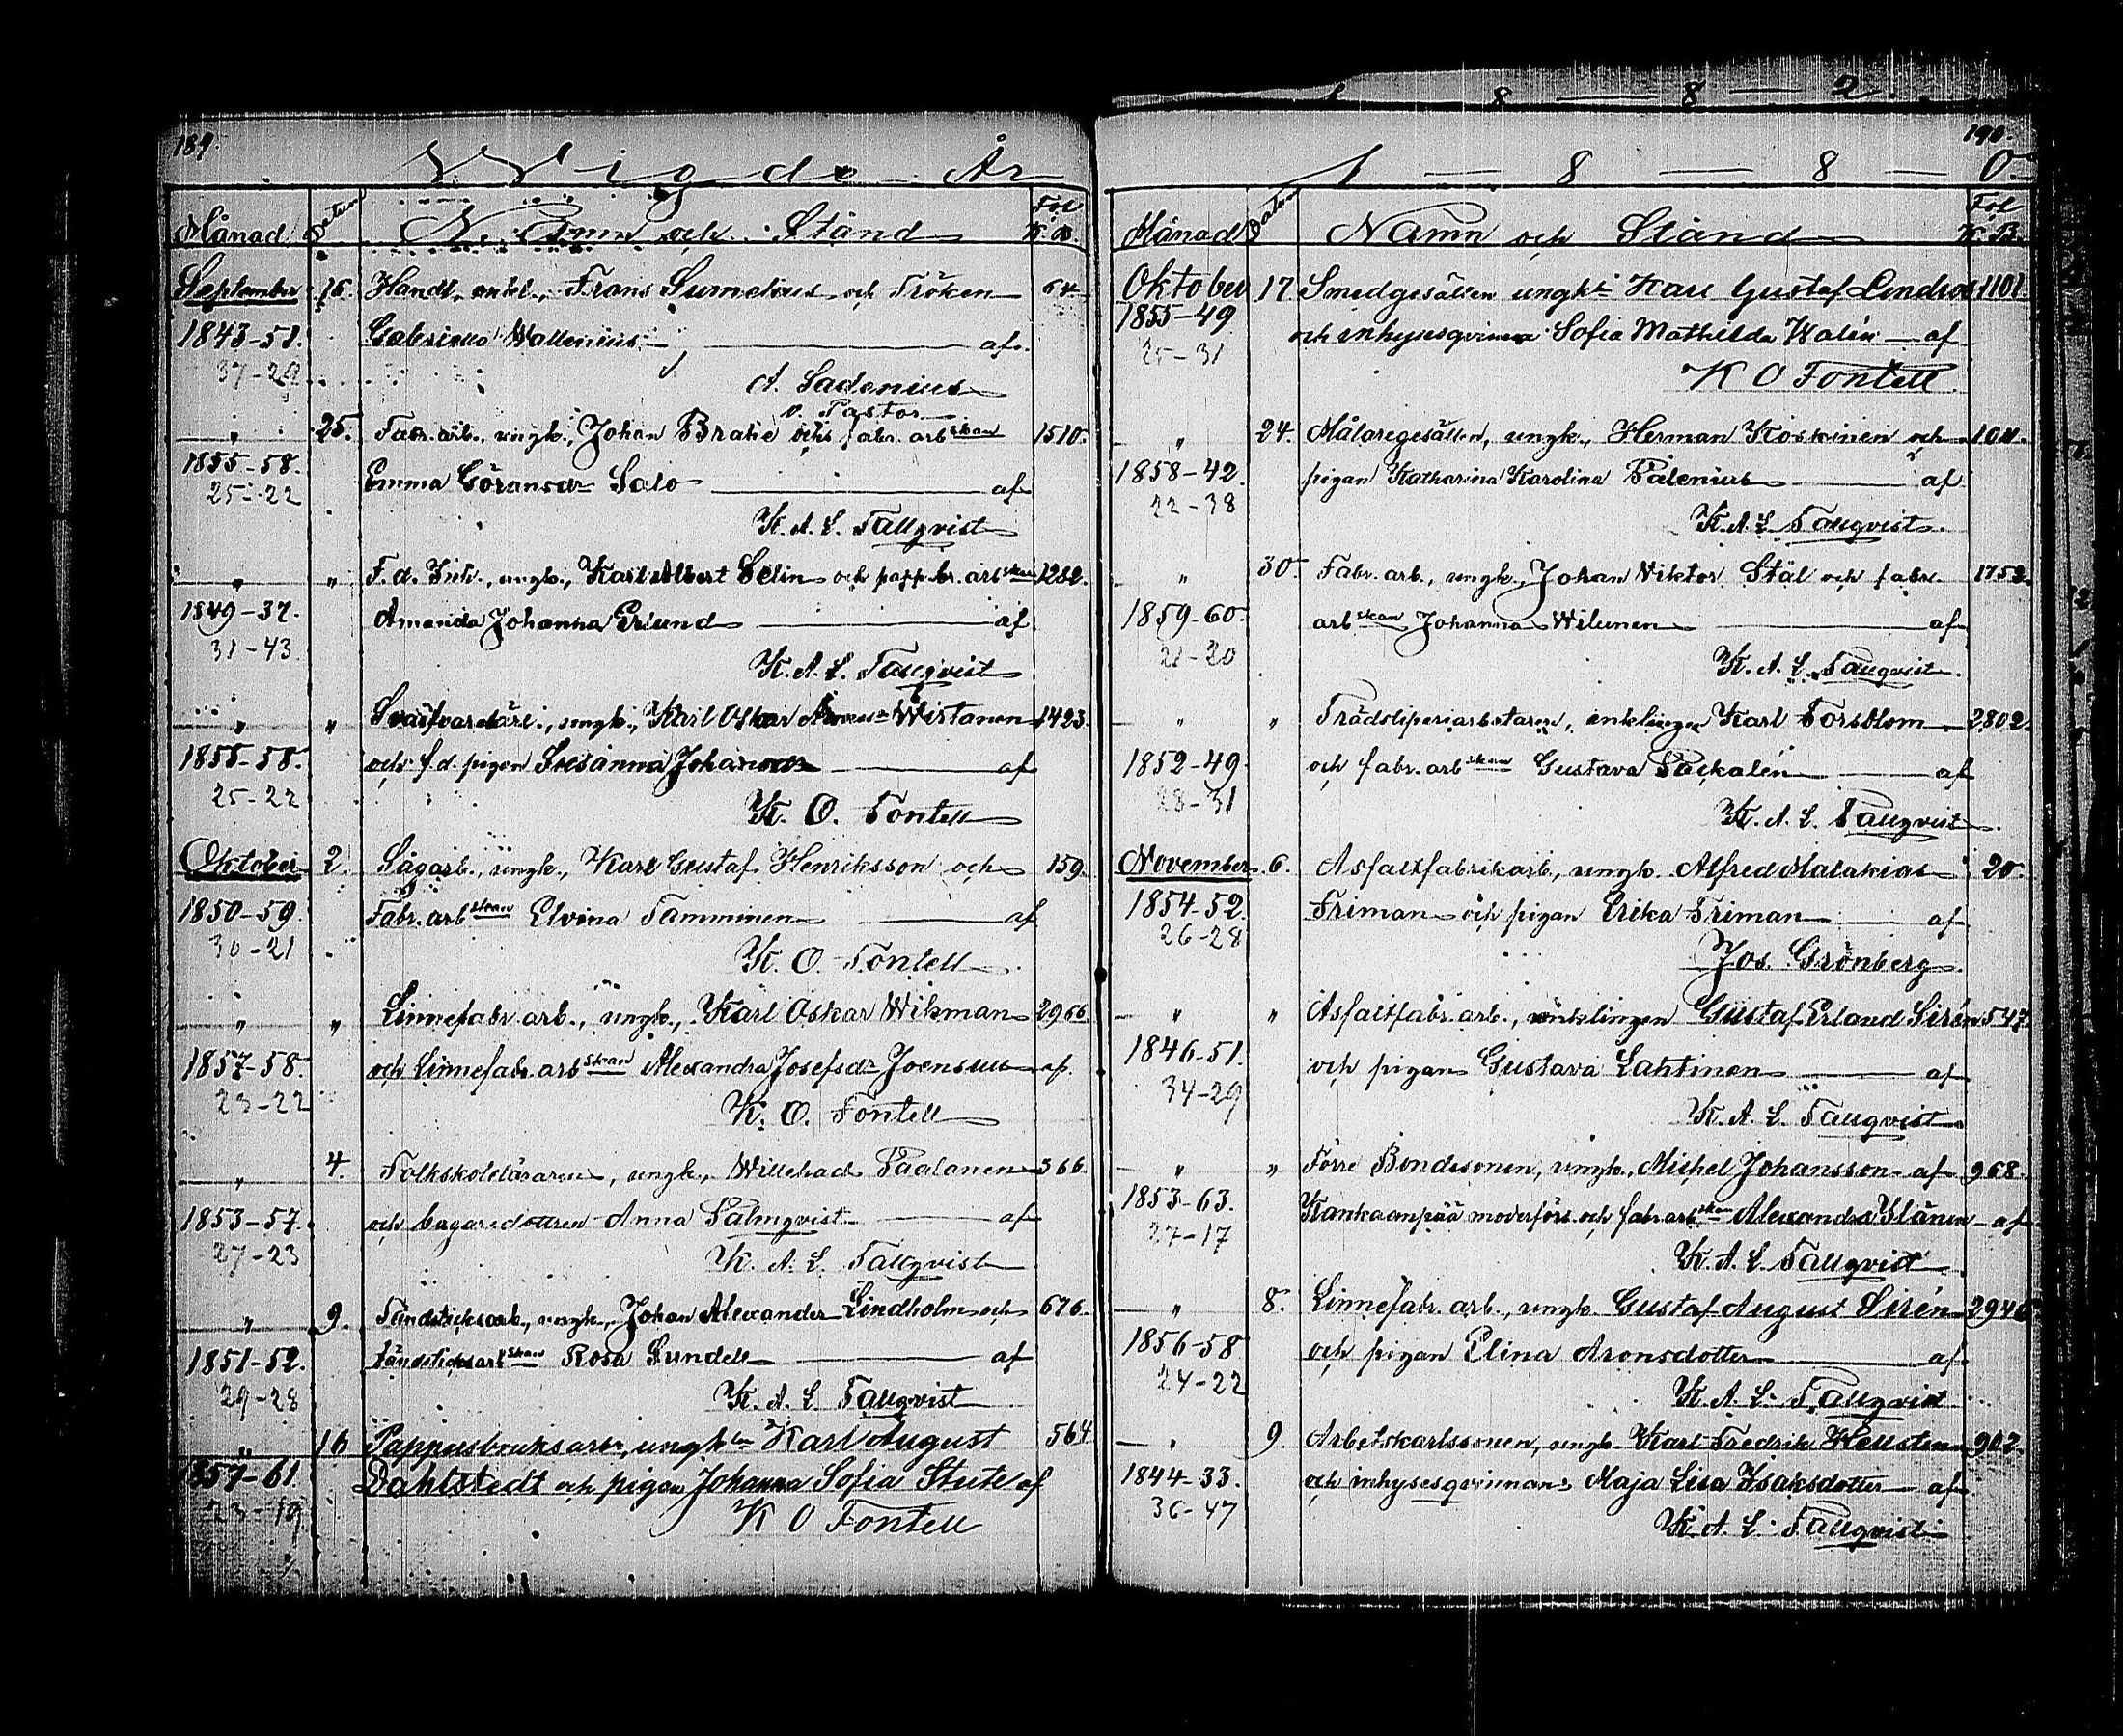 1 — 8 — 8 — 2.
189.
Wigde År
Månad Datum Namn och Stånd Fol K.B.
September 16. Handl., enkl., Frans Sumelius och Fröken 64.
1843-51. Gabriella Wallenius af
37-29
A. Ladenius
v. Pastor
" 25. Fabr. arb., ungk., Johan Brahe och fabr. arbskan 1510.
1855-58. Emma Göransdr Salo af
25-22
K. A. L. Tallqvist
" " F. d. Inh., ungk., Karl Albert Selin och papp.br. arbskan 1282.
1849-37. Amanda Johanna Erlund af
31-43
K. A. L. Tallqvist
" " ungk., Karl Oskar Wirtanen 1423.
1855-58. och f.d. pigan Susanna Johansdr af
25-22
K. O. Fontell
Oktober 2. Sågarb., ungk., Karl Gustaf Henriksson och 159.
1850-59. Fabr. arbskan Elvina Tamminen af
30-21
K. O. Fontell
" " Linnefabr. arb., ungk., Karl Oskar Wikman 2966
1857-58. och Linnefabr. arbskan Alexandra Josefsdr Joensuu af
23-22
K. O. Fontell
" 4. Folkskoleläraren, ungk., Willehad Paalanen 366.
1853-57. och bagaredottren Anna Palmqvist af
27-23
K. A. L. Tallqvist
" 9. Tändsticksarb., ungk., Johan Alexander Lindholm och 676.
1851-52. tändsticksarbskan Rosa Sundell af
29-28
K. A. L. Tallqvist
" 16 Pappersbruksarb., ungkln Karl August 564
1857-61. Dahlstedt och pigan Johanna Sofia Stule af
23-19
K O Fontell
190.
1 — 8 — 8 — 0.
Månad Datum Namn och Stånd Fol K. B.
Oktober 17 Smedgesällen ungkn Karl Gustaf Lindroos 1101
1855-49 och inhysesqvinna Sofia Mathilda Walén af
25-31
K O Fontell
" 24. Målaregesällen, ungk., Herman Koskinen och 104.
1858-42. pigan Katharina Karolina Palenius af
22-38
K. A. L. Tallqvist.
" 30. Fabr. arb., ungk., Johan Wiktor Stål och fabr. 1752.
1859-60. arbskan Johanna Wilenen af
21-20
K. A. L. Tallqvist.
" " Trädsliperiarbetaren, enklingen Karl Forsblom 2802.
1852-49. och fabr. arbskan Gustava Packalén af
28-31
K. A. L. Tallqvist
November 6. Asfaltfabrikarb., ungk. Alfred Malakias 20.
1854-52. Friman och pigan Erika Friman af
26-28
Jos. Grönberg.
" " Asfaltfabr. arb., enklingen Gustaf Erland Sirén 547
1846-51. och pigan Gustava Lahtinen af
34-29
K. A. L. Tallqvist
" " Förre Bondesonen, ungk., Michel Johansson af 968.
1853-63. Kankaanpää moderförs. och fabr arbskan Alexandra Ylänen af
27-17
K. A. L. Tallqvist
" 8. Linnefabr. arb., ungk. Gustaf August Sirén 2946
1856-58 och pigan Elina Aronsdotter af
24-22
K. A. L. Tallqvist
" 9. Arbetskarlssonen, ungk. Karl Fredrik Hellsten 902.
1844-33. och inhysesqvinnan Maja Lisa Isaksdotter af
36-47
K. A. L. Tallqvist